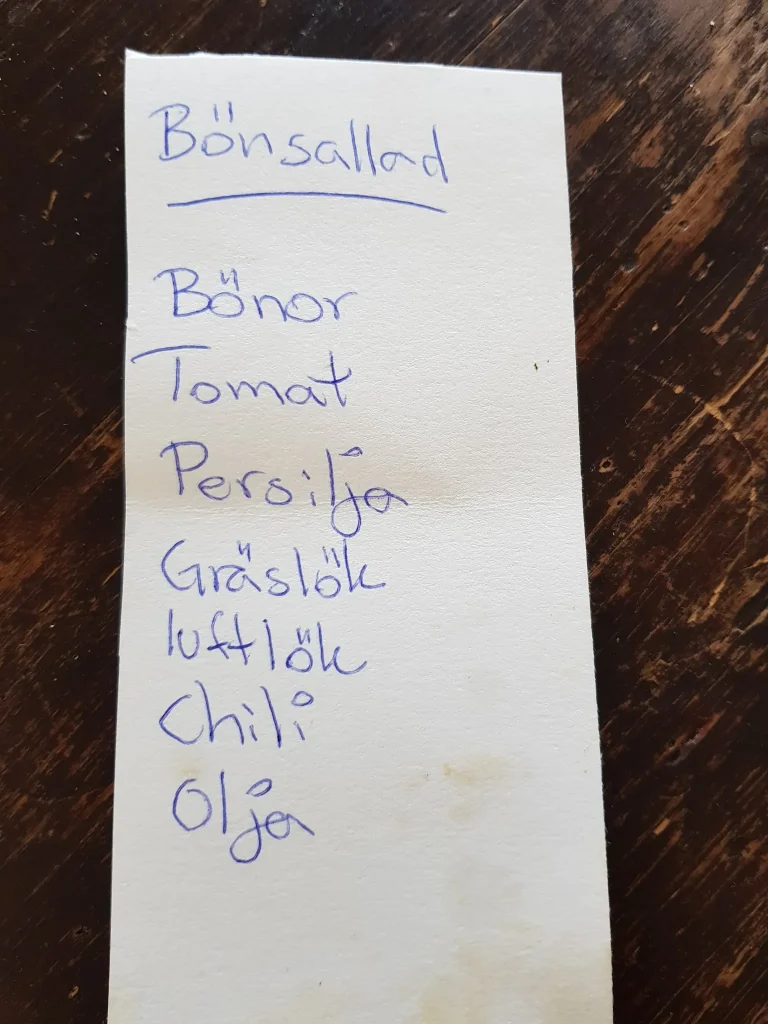 Bönsallad
Bönor
Tomat
Persilja
Gräslök
luftlök
Chili
Olja